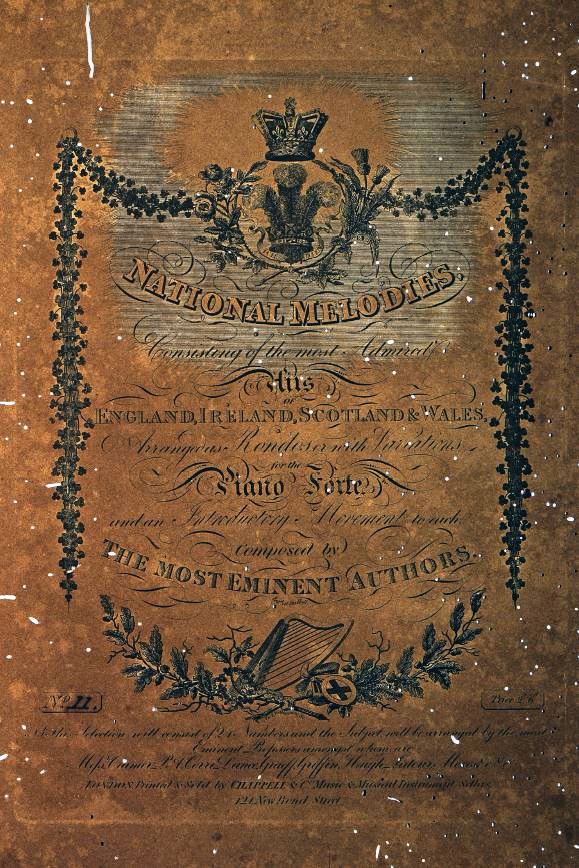 NATIONAL MELODIES,
Consisting of the most Admired
Airs
OF
ENGLAND, IRELAND, SCOTLAND & WALES,
Arranged as Rondos or with Variations,
for the
Piano Forte,
and an Introductory Movement to each
Composed by
THE MOST EMINENT AUTHORS.
No. 11.
Price 2/6
the Selection will consist of 24 Numbers and the Subject will be arranged by the most
Eminent Professors amongst whom are
Messrs Cramer, P. A. Corri, Griffin,
LONDON Printed & Sold by CHAPPELL & Co. Music & Musical Instrument Sellers
124 New Bond Street